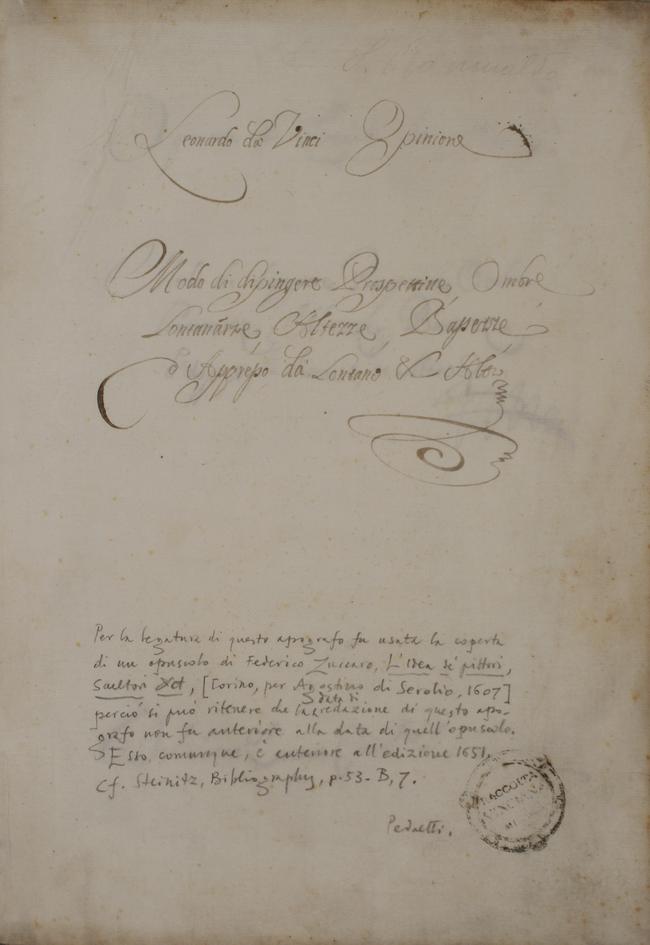 Leonardo da Vinci Opinione
Modo di dipingere Prospettive Ombre
Lontananze Altezze Bassezze
d Appresso da Lontano &
Per la legatura di questo apografo fu usata la coperta
di un opuscolo di Federico Zuccaro, L'Idea de' pittori,
Scultori &ct, [Torino, per Agostino di Serolio, 1607]
data di
perciò si può ritenere che la redazione di questo apo-
grafo non fu anteriore alla data di quell'opuscolo.
Esso, comunque, è anteriore all'edizione 1651.
Cf. Steinitz, Bibliography, p. 53 - B, 7.
Pedretti.
RACCOLTA
VINCIANA